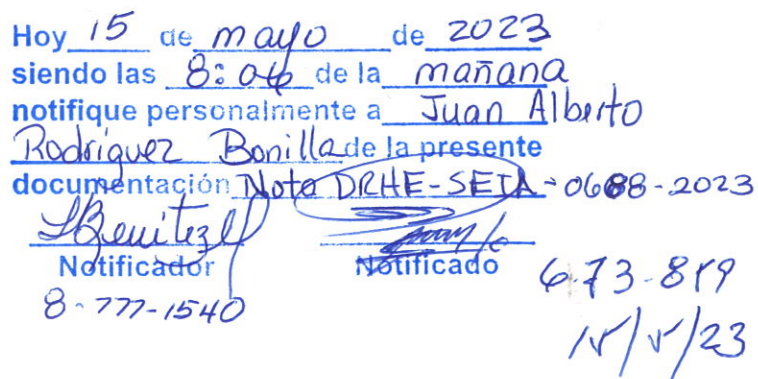 Hoy 15 de mayo de 2023
siendo las 8:06 de la mañana
notifique personalmente a Juan Alberto
Rodriguez Bonilla de la presente
documentación Nota DRHE-SEIA-0688-2023
SBenitez
Notificador Notificado
8-777-1540
6-73-819
15/5/23